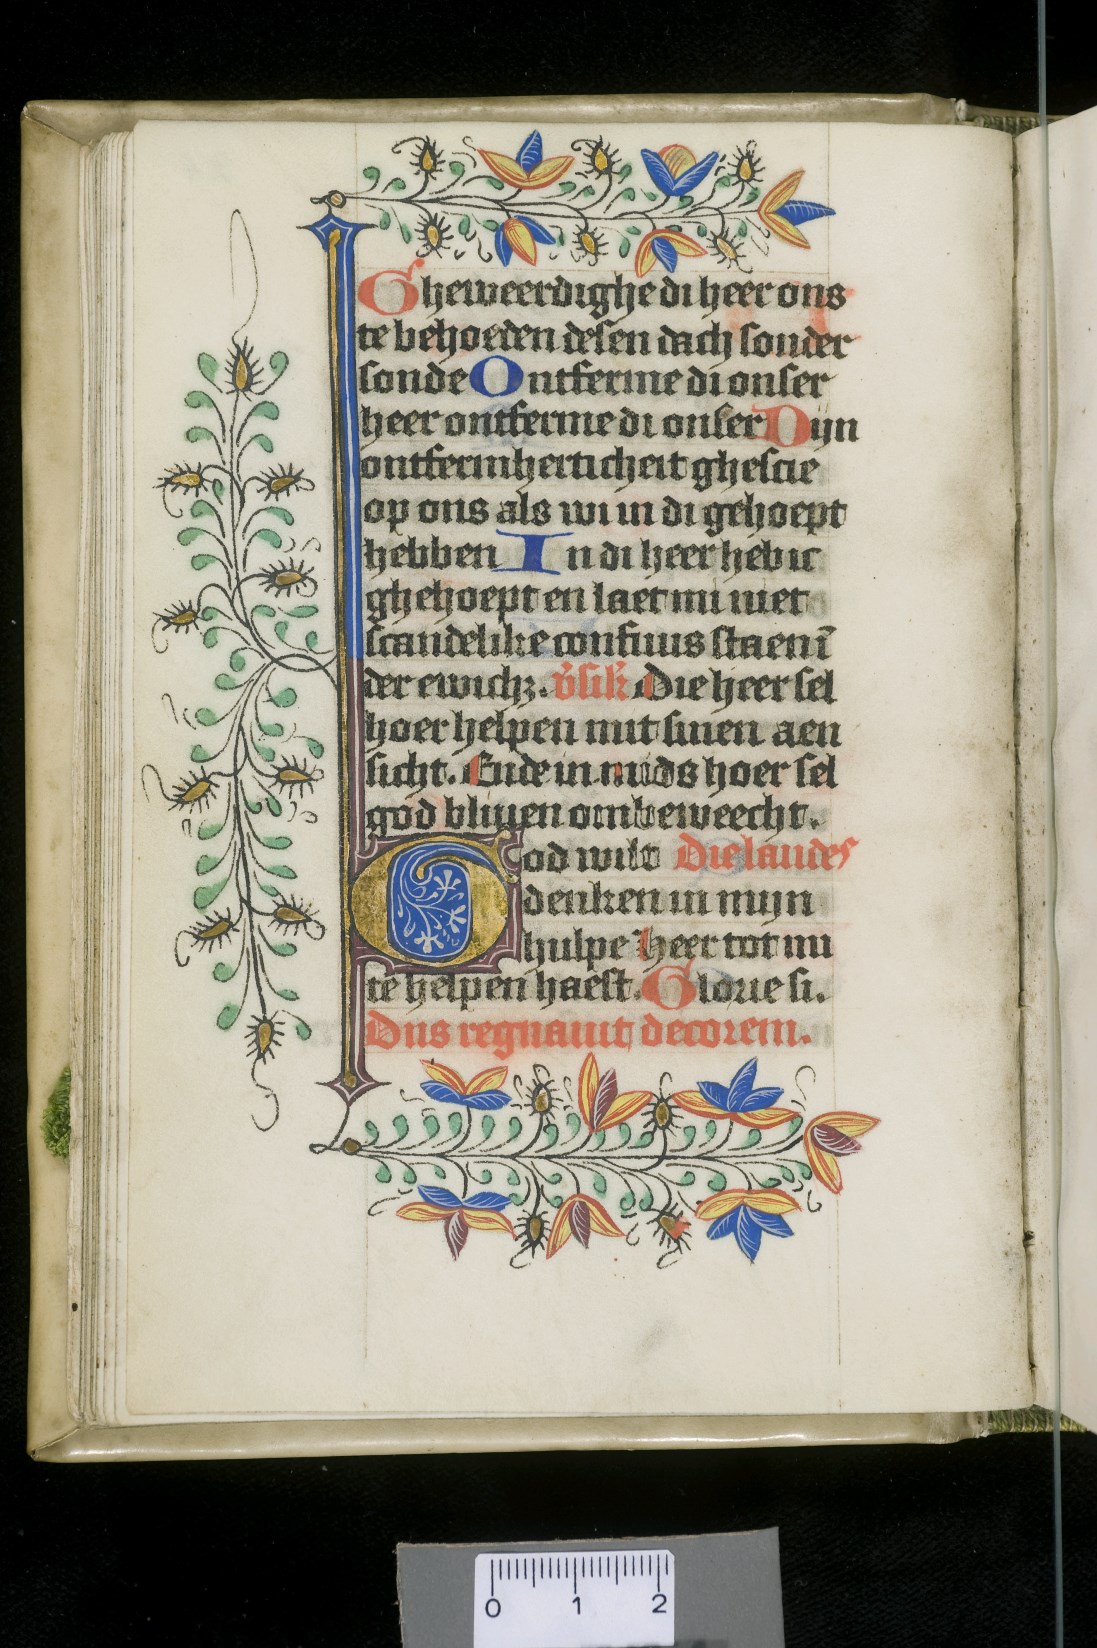 Gheweerdighe di heer ons
te behoeden desen dach sonder
sonde Ontferme di onser
heer ontferme di onser Dijn
ontfermherticheit ghescie
op ons als wi in di gehoept
hebben In di heer heb ic
ghehoept en laet mi niet
scandelike confuus staen ī
der ewich⁊. v̓sik̓ Die heer sel
hoer helpen mit sinen aen
sicht. Ende in mids hoer sel
god bliuen ombeweecht.
God wilt Die laudes
denken in mijn
hulpe heer tot mi
te helpen haest. Glorie si.
Dns regnauit decorem.
0 1 2